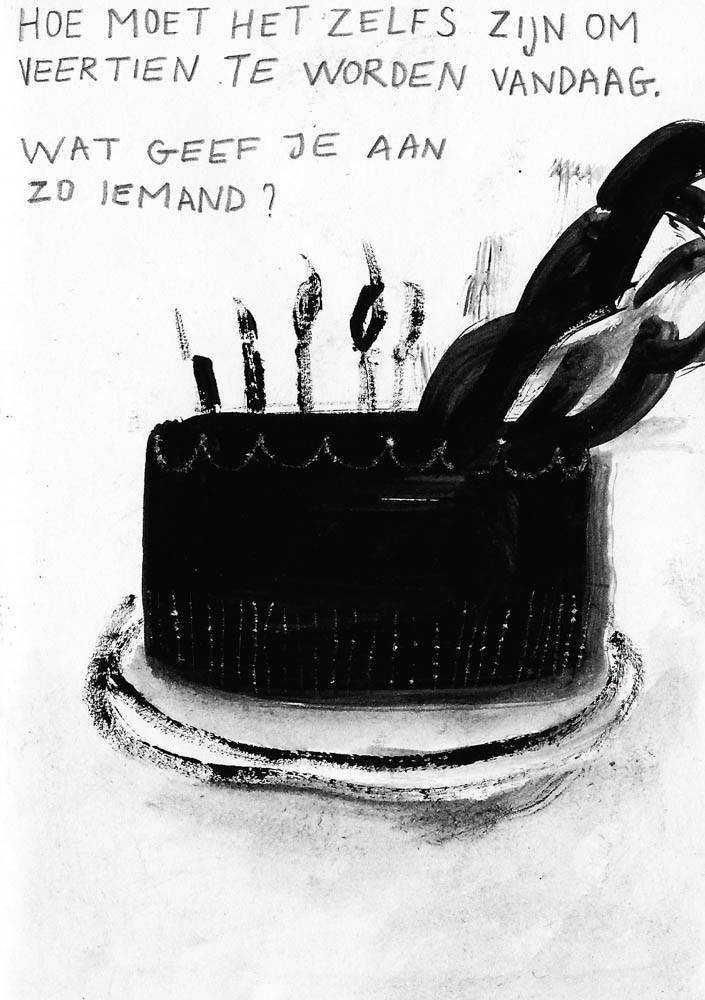 HOE MOET HET ZELFS ZIJN OM
VEERTIEN TE WORDEN VANDAAG.
WAT GEEF JE AAN
ZO IEMAND?